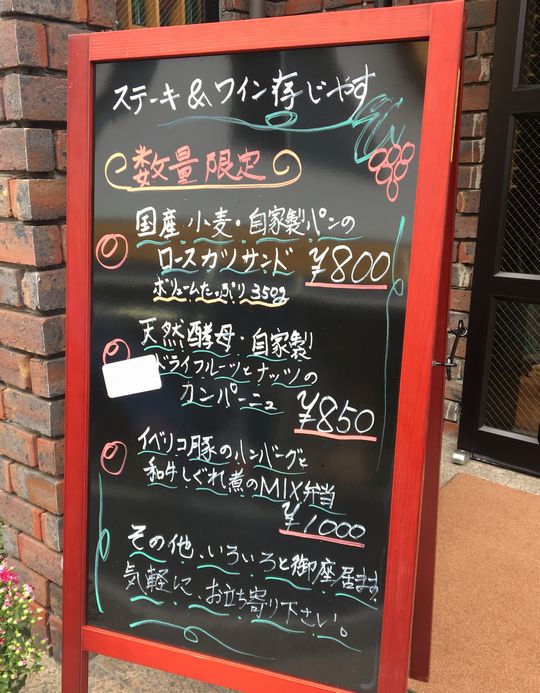 ステーキ&ワイン存じやす
数量限定
国産小麦・自家製パンの
ロースカツサンド ¥800
ボリュームたっぷり 350g
天然酵母・自家製
ドライフルーツとナッツの
カンパーニュ ¥850
イベリコ豚のハンバーグと
和牛しぐれ煮のMIX弁当
¥1000
その他、いろいろと御座居ます
気軽に、お立ち寄り下さい。